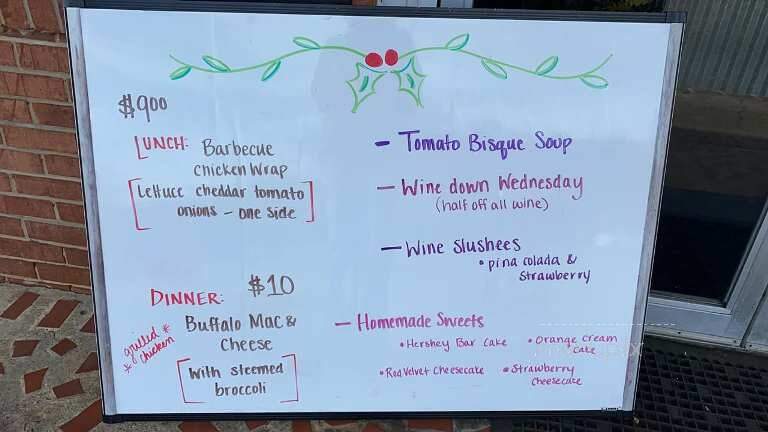 $900
LUNCH: Barbecue
chicken Wrap
[Lettuce cheddar tomato
onions - one side]
DINNER: $10
Buffalo Mac &
Cheese
* grilled *
chicken
[With steemed
broccoli]
- Tomato Bisque Soup
- Wine down Wednesday
(half off all wine)
- Wine Slushees
• pina colada &
Strawberry
- Homemade Sweets
• Hershey Bar Cake • Orange cream
cake
• Red Velvet Cheesecake • Strawberry
Cheesecake